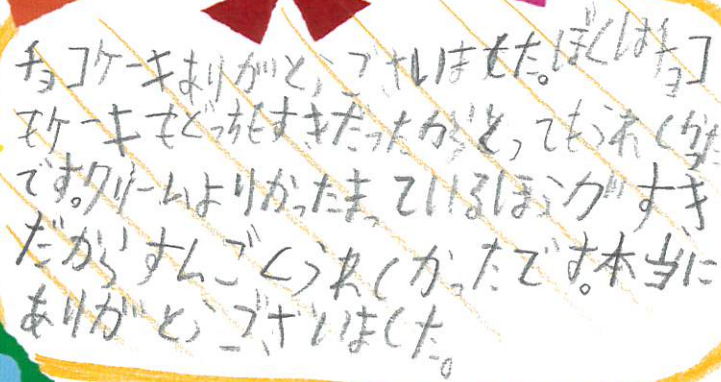 チョコケーキありがとうございました。ぼくはチョコ
もケーキもどっちもすきだったからとってもうれしかった
です。クリームよりかたまっているほうがすき
だからすんごくうれしかったです。本当に
ありがとうございました。